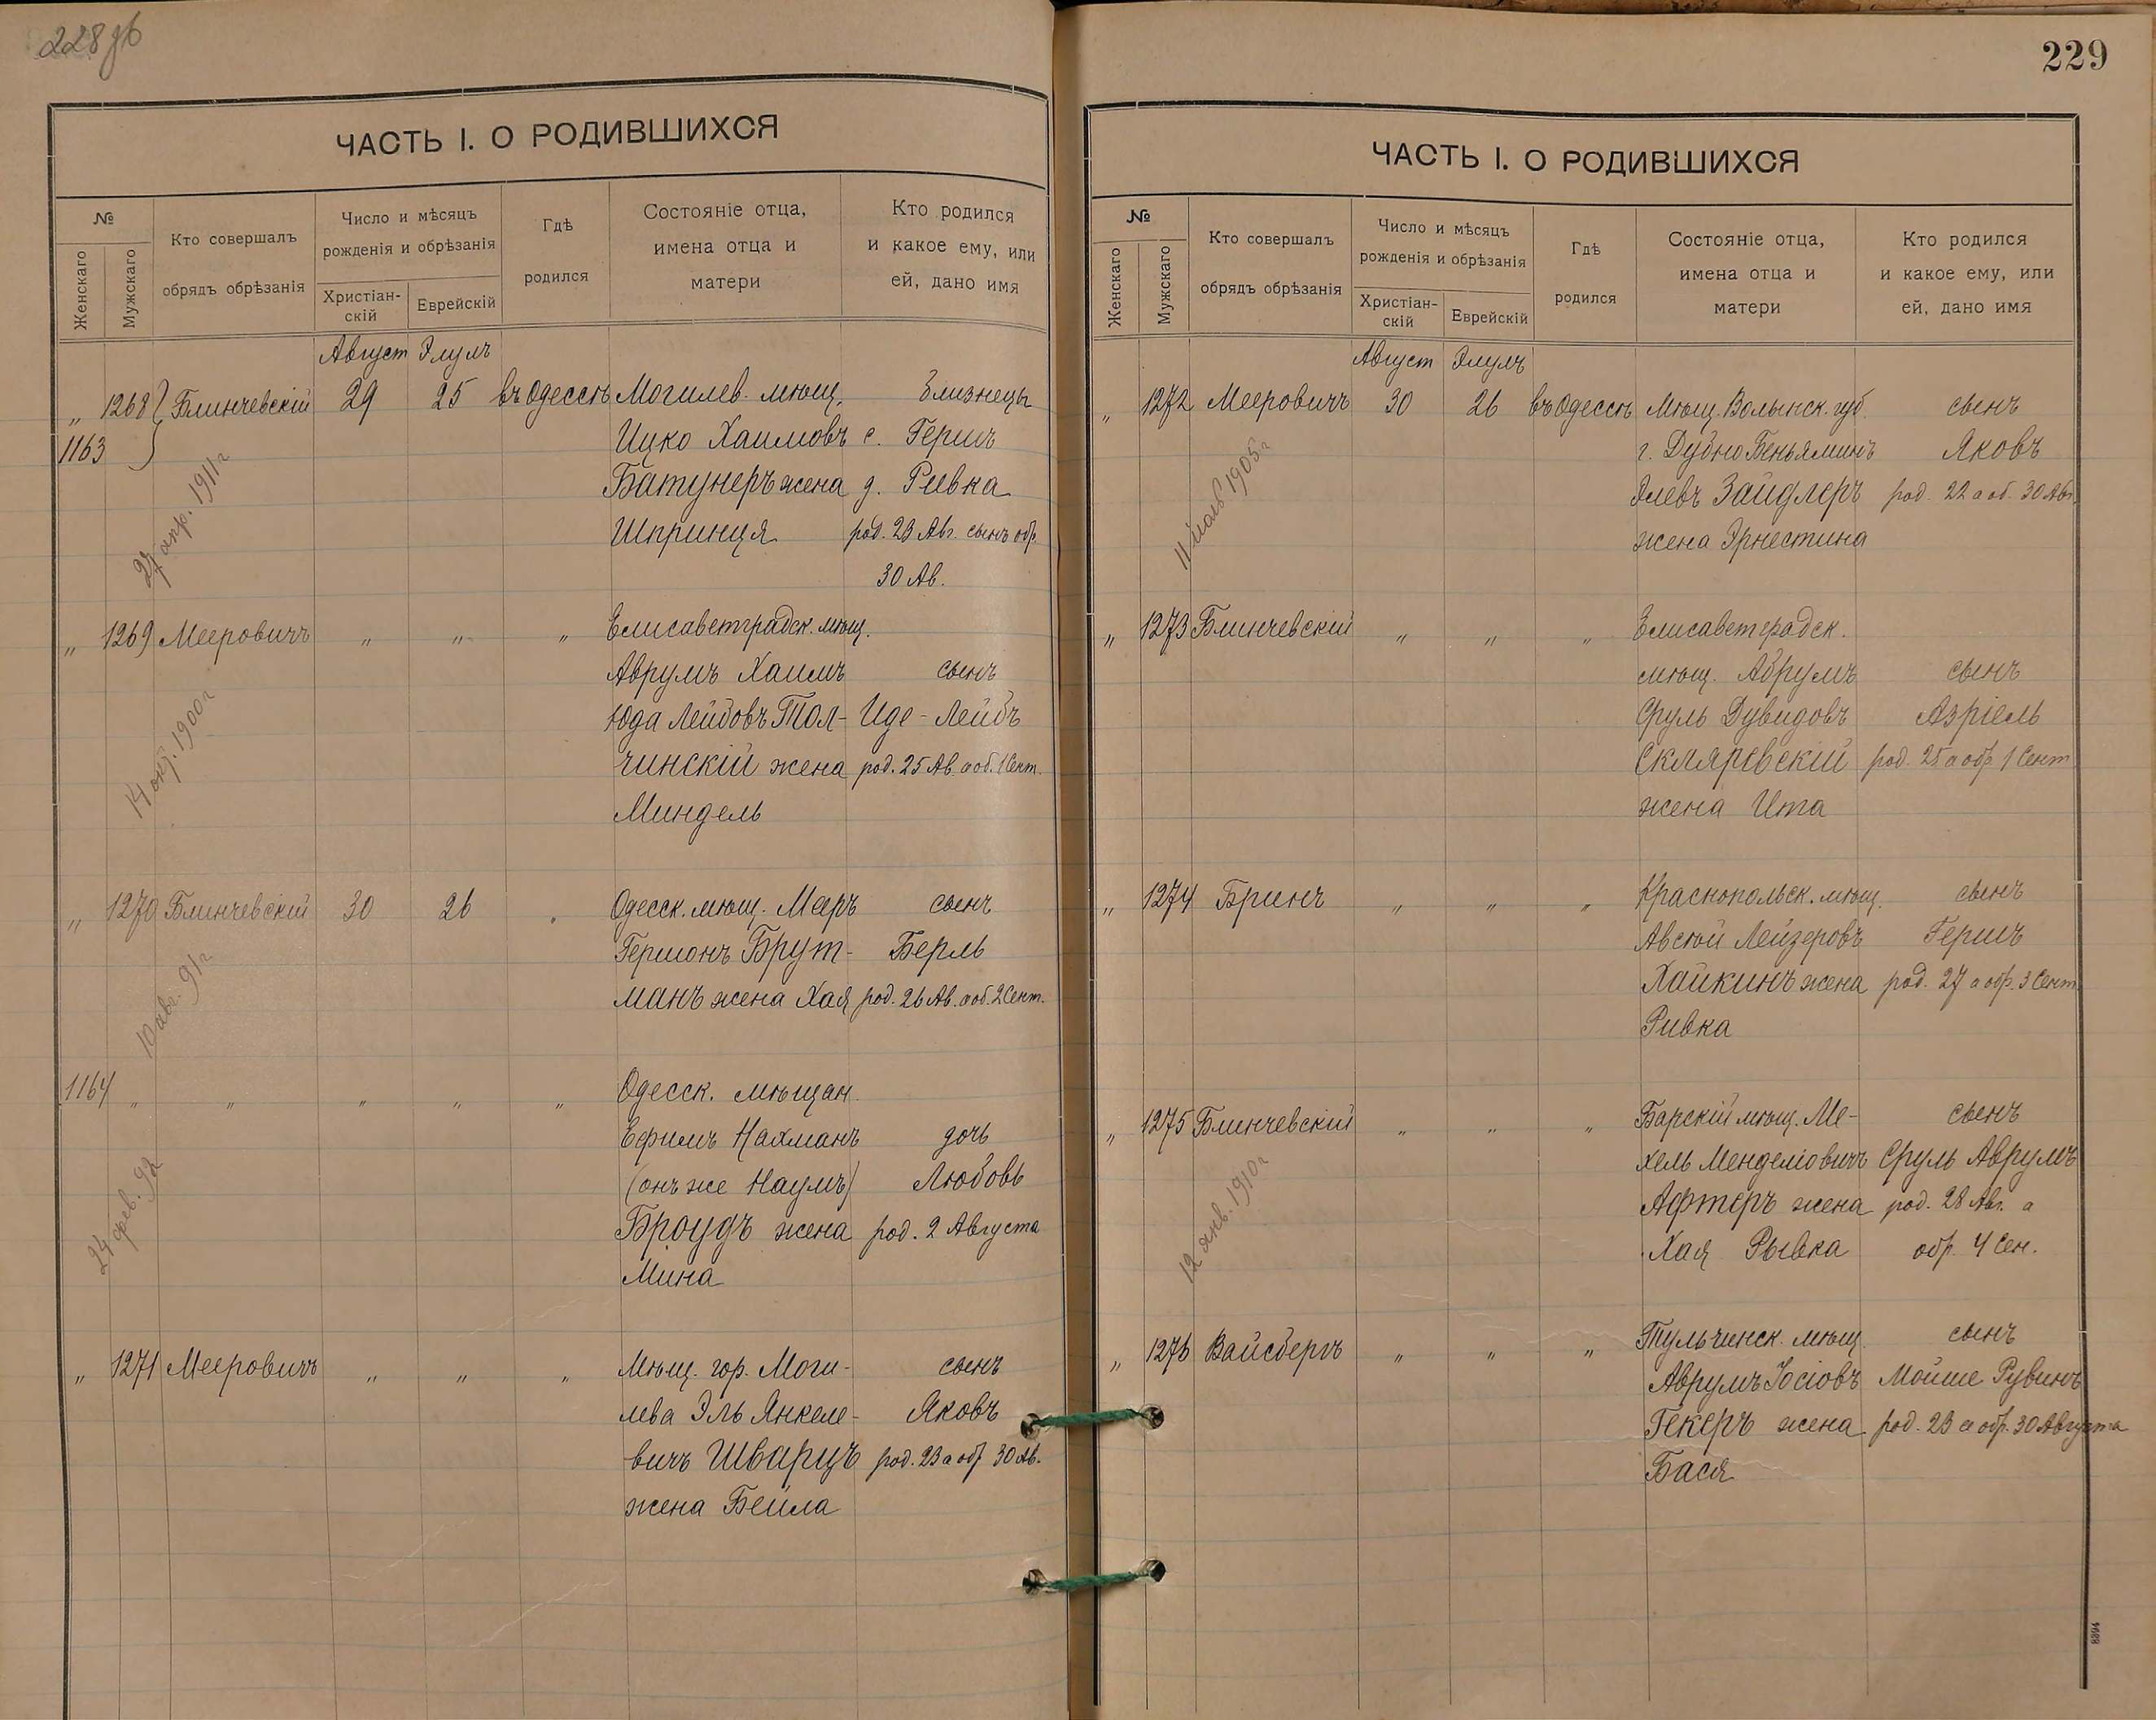 228 об
ЧАСТЬ I. О РОДИВШИХСЯ
№
Женскаго
Мужскаго
Кто совершалъ
обрядъ обрѣзанія
Число и мѣсяцъ
рожденія и обрѣзанія
Христіан-
скій
Еврейскій
Гдѣ
родился
Состояніе отца,
имена отца и
матери
Кто родился
и какое ему, или
ей, дано имя
Август Элулъ
„ 1268 Блинчевскій 29 25 въ Одессѣ Могилев. мѣщ. Близнецы
1163 Ицко Хаимовъ с. Гершъ
Батунеръ жена д. Ривка
Шпринця род. 23 Авг. сынъ обр.
30 Ав.
27 апр. 1911 г
„ 1269 Мееровичъ „ „ „ Елисаветградск. мѣщ.
Аврумъ Хаимъ сынъ
Юда Лейбовъ Тол- Иде-Лейбъ
чинскій жена род. 25 Ав. а об. 1 Сент.
Миндель
14 окт. 1900 г
„ 1270 Блинчевскій 30 26 „ Одесск. мѣщ. Меръ сынъ
Гершонъ Брут- Берль
манъ жена Хая род. 26 Ав. а об. 2 Сент.
10 авг. 91 г
1164 „ „ „ „ „ Одесск. мѣщан.
Ефимъ Нахманъ дочь
(онъ же Наумъ) Любовь
Броудъ жена род. 2 Августа
Мина
24 фев. 92
„ 1271 Мееровичъ „ „ „ Мѣщ. гор. Моги- сынъ
лева Эль Янкеле- Яковъ
вичъ Шварцъ род. 23 а обр 30 Ав.
жена Бейла
229
ЧАСТЬ I. О РОДИВШИХСЯ
№
Женскаго
Мужскаго
Кто совершалъ
обрядъ обрѣзанія
Число и мѣсяцъ
рожденія и обрѣзанія
Христіан-
скій
Еврейскій
Гдѣ
родился
Состояніе отца,
имена отца и
матери
Кто родился
и какое ему, или
ей, дано имя
Август Элулъ
„ 1272 Мееровичъ 30 26 въ Одессѣ Мѣщ. Волынск. губ. сынъ
г. Дубно Беньяминъ Яковъ
Элевъ Зайдлеръ род. 22 а об. 30 Авг.
жена Эрнестина
1905 г
„ 1273 Блинчевскій „ „ „ Елисаветградск.
мѣщ. Абрумъ сынъ
Сруль Дувидовъ Азріель
Скляревскій род. 25 а обр 1 Сент
жена Ита
„ 1274 Бринъ „ „ „ Краснопольск. мѣщ. сынъ
Авсѣй Лейзеровъ Гершъ
Хайкинъ жена род. 27 а обр. 3 Сент.
Ривка
„ 1275 Блинчевскій „ „ „ Барскій мѣщ. Ме- сынъ
хель Менделіовичъ Сруль Аврумъ
Афтеръ жена род. 28 Авг. а
Хая Рывка обр. 4 Сен.
12 янв. 1910 г
„ 1276 Вайсбергъ „ „ „ Тульчинск. мѣщ. сынъ
Аврумъ Іосіовъ Мойше Рувинъ
Гекеръ жена род. 23 а обр. 30 Августа
Бася
8394